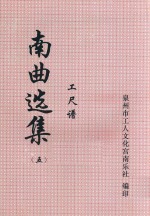 工尺谱
南曲选集
（五）
泉州市工人文化宫南乐社 编印